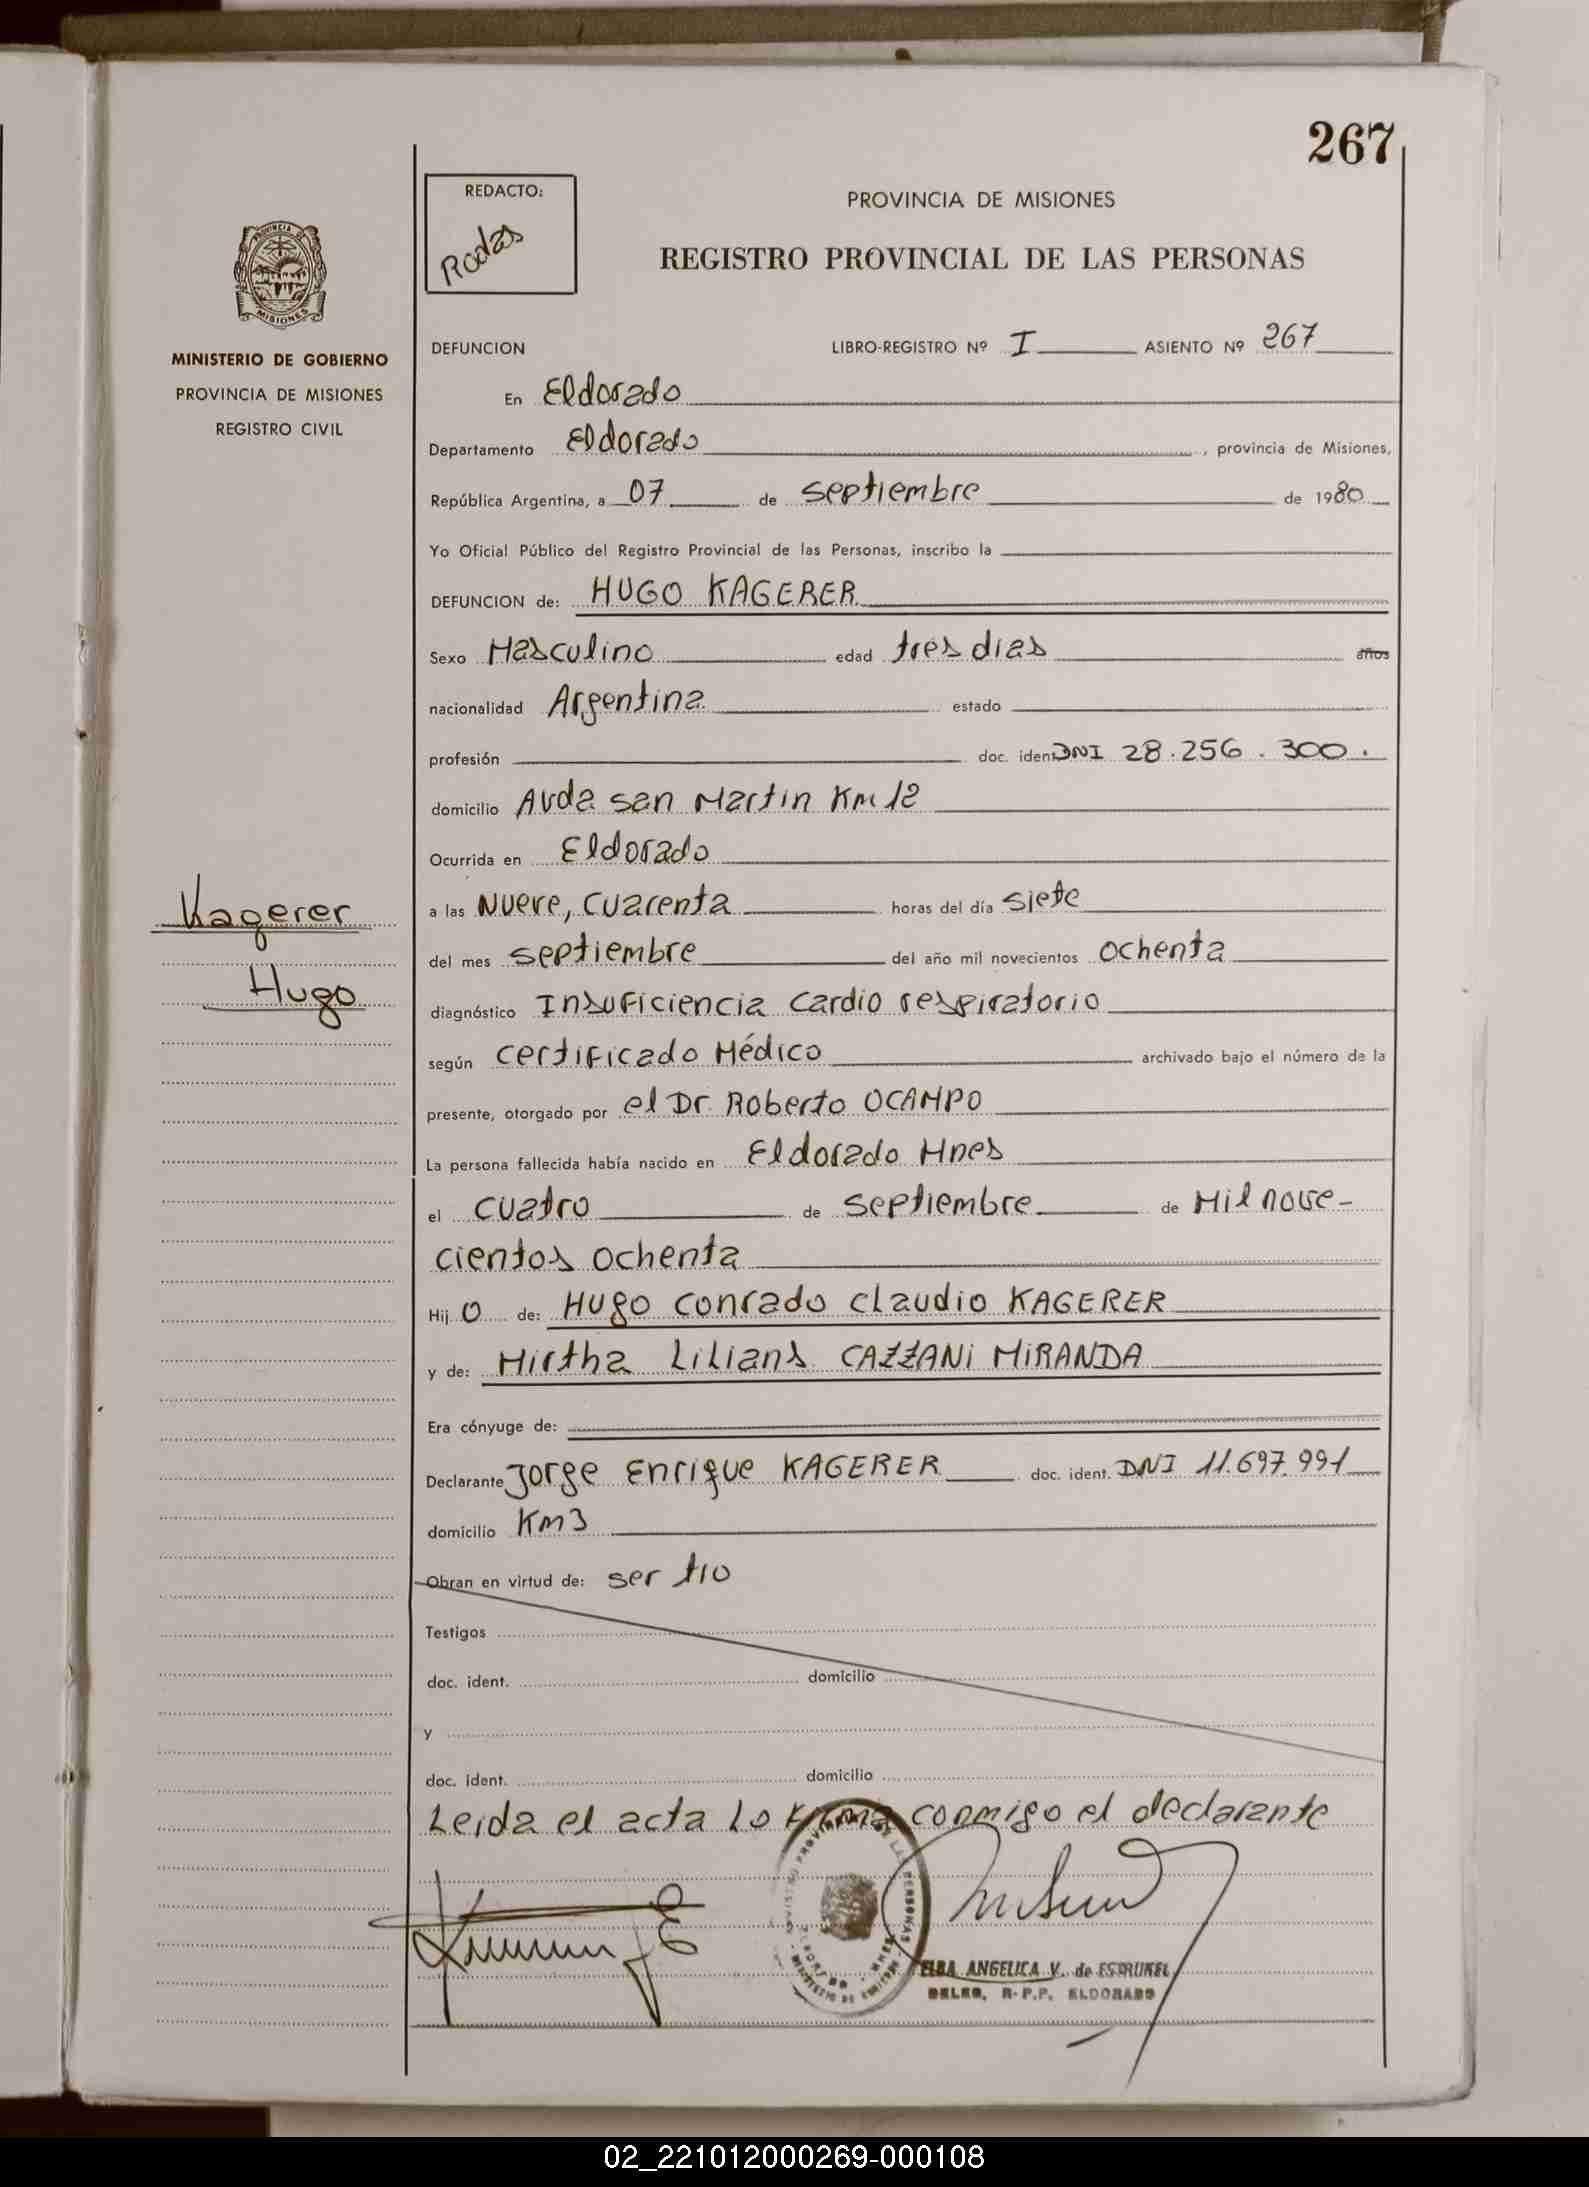 267
REDACTO:
Rodas
PROVINCIA DE MISIONES
REGISTRO PROVINCIAL DE LAS PERSONAS
PROVINCIA DE
MISIONES
MINISTERIO DE GOBIERNO
PROVINCIA DE MISIONES
REGISTRO CIVIL
DEFUNCION LIBRO-REGISTRO Nº I ASIENTO Nº 267
En Eldorado
Departamento Eldorado, provincia de Misiones,
República Argentina, a 07 de septiembre de 1980
Yo Oficial Público del Registro Provincial de las Personas, inscribo la
DEFUNCION de: HUGO KAGERER
Sexo Masculino edad tres dias años
nacionalidad Argentina estado
profesión doc. iden DNI 28.256.300.
domicilio Avda san Martin Km 12
Ocurrida en Eldorado
a las Nueve, cuarenta horas del día siete
del mes septiembre del año mil novecientos ochenta
diagnóstico Insuficiencia cardio respiratorio
según certificado Médico archivado bajo el número de la
presente, otorgado por el Dr. Roberto OCAMPO
La persona fallecida había nacido en Eldorado Mnes
el cuatro de septiembre de Mil nove-
cientos ochenta
Hij o de: Hugo conrado claudio KAGERER
y de: Mirtha Lilians CAZZANI MIRANDA
Era cónyuge de:
Declarante Jorge Enrique KAGERER doc. ident. DNI 11.697.991
domicilio Km3
Obran en virtud de: ser tio
Testigos
doc. ident. domicilio
y
doc. ident. domicilio
Leida el acta lo firma conmigo el declarante
Kagerer
Hugo
ELBA ANGELICA V. de ESTRUKEL
DELEG. R.P.P. ELDORADO
02_221012000269-000108